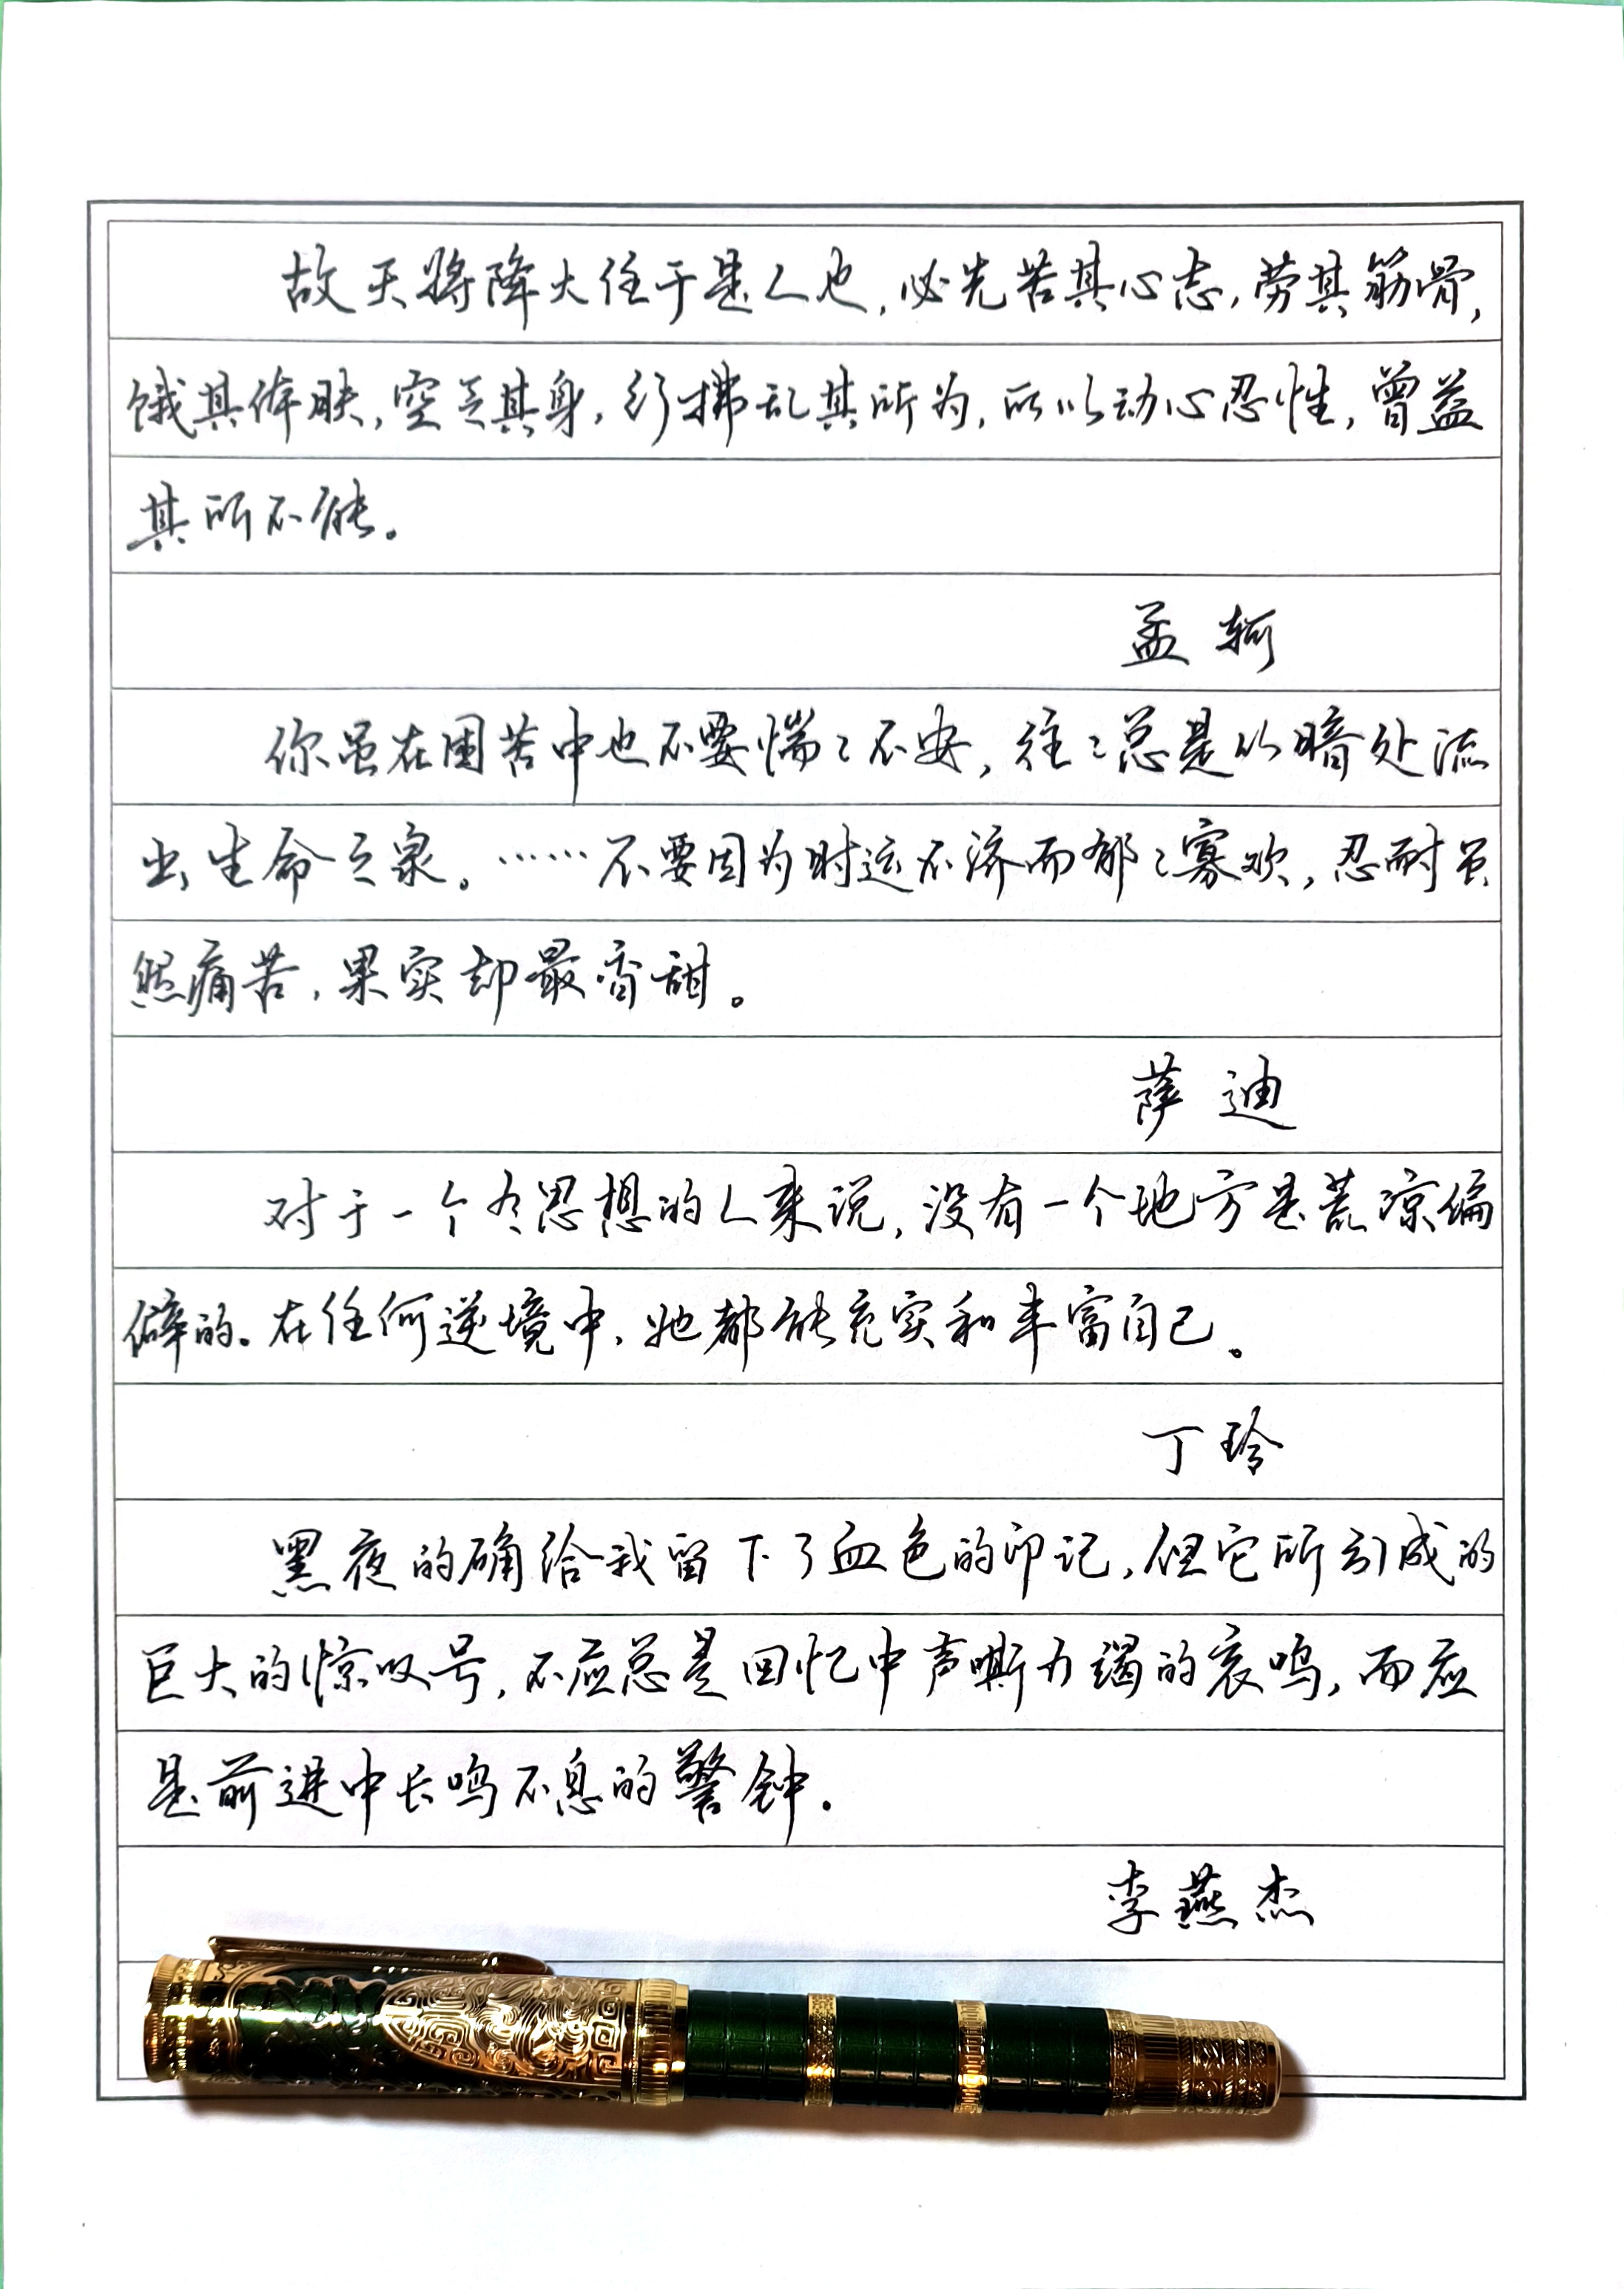 故天将降大任于是人也，必先苦其心志，劳其筋骨，
饿其体肤，空乏其身，行拂乱其所为，所以动心忍性，曾益
其所不能。
孟轲
你虽在困苦中也不要惴々不安，往々总是从暗处流
出生命之泉。……不要因为时运不济而郁々寡欢，忍耐虽
然痛苦，果实却最香甜。
萨迪
对于一个有思想的人来说，没有一个地方是荒凉偏
僻的。在任何逆境中，她都能充实和丰富自己。
丁玲
黑夜的确给我留下了血色的印记，但它所引成的
巨大的惊叹号，不应总是回忆中声嘶力竭的哀鸣，而应
是前进中长鸣不息的警钟。
李燕杰